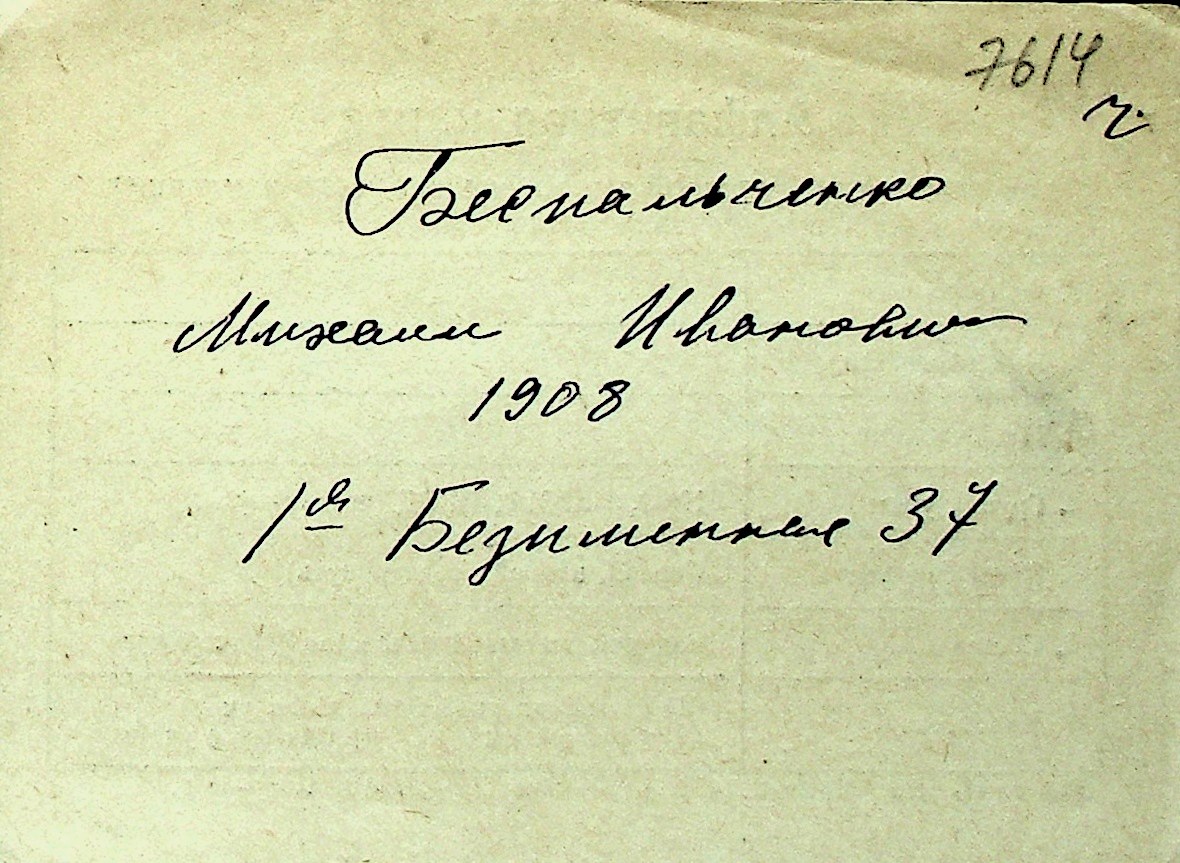 7614
ч.
Беспальченко
Михаил Иванович
1908
1ая Безименная 37